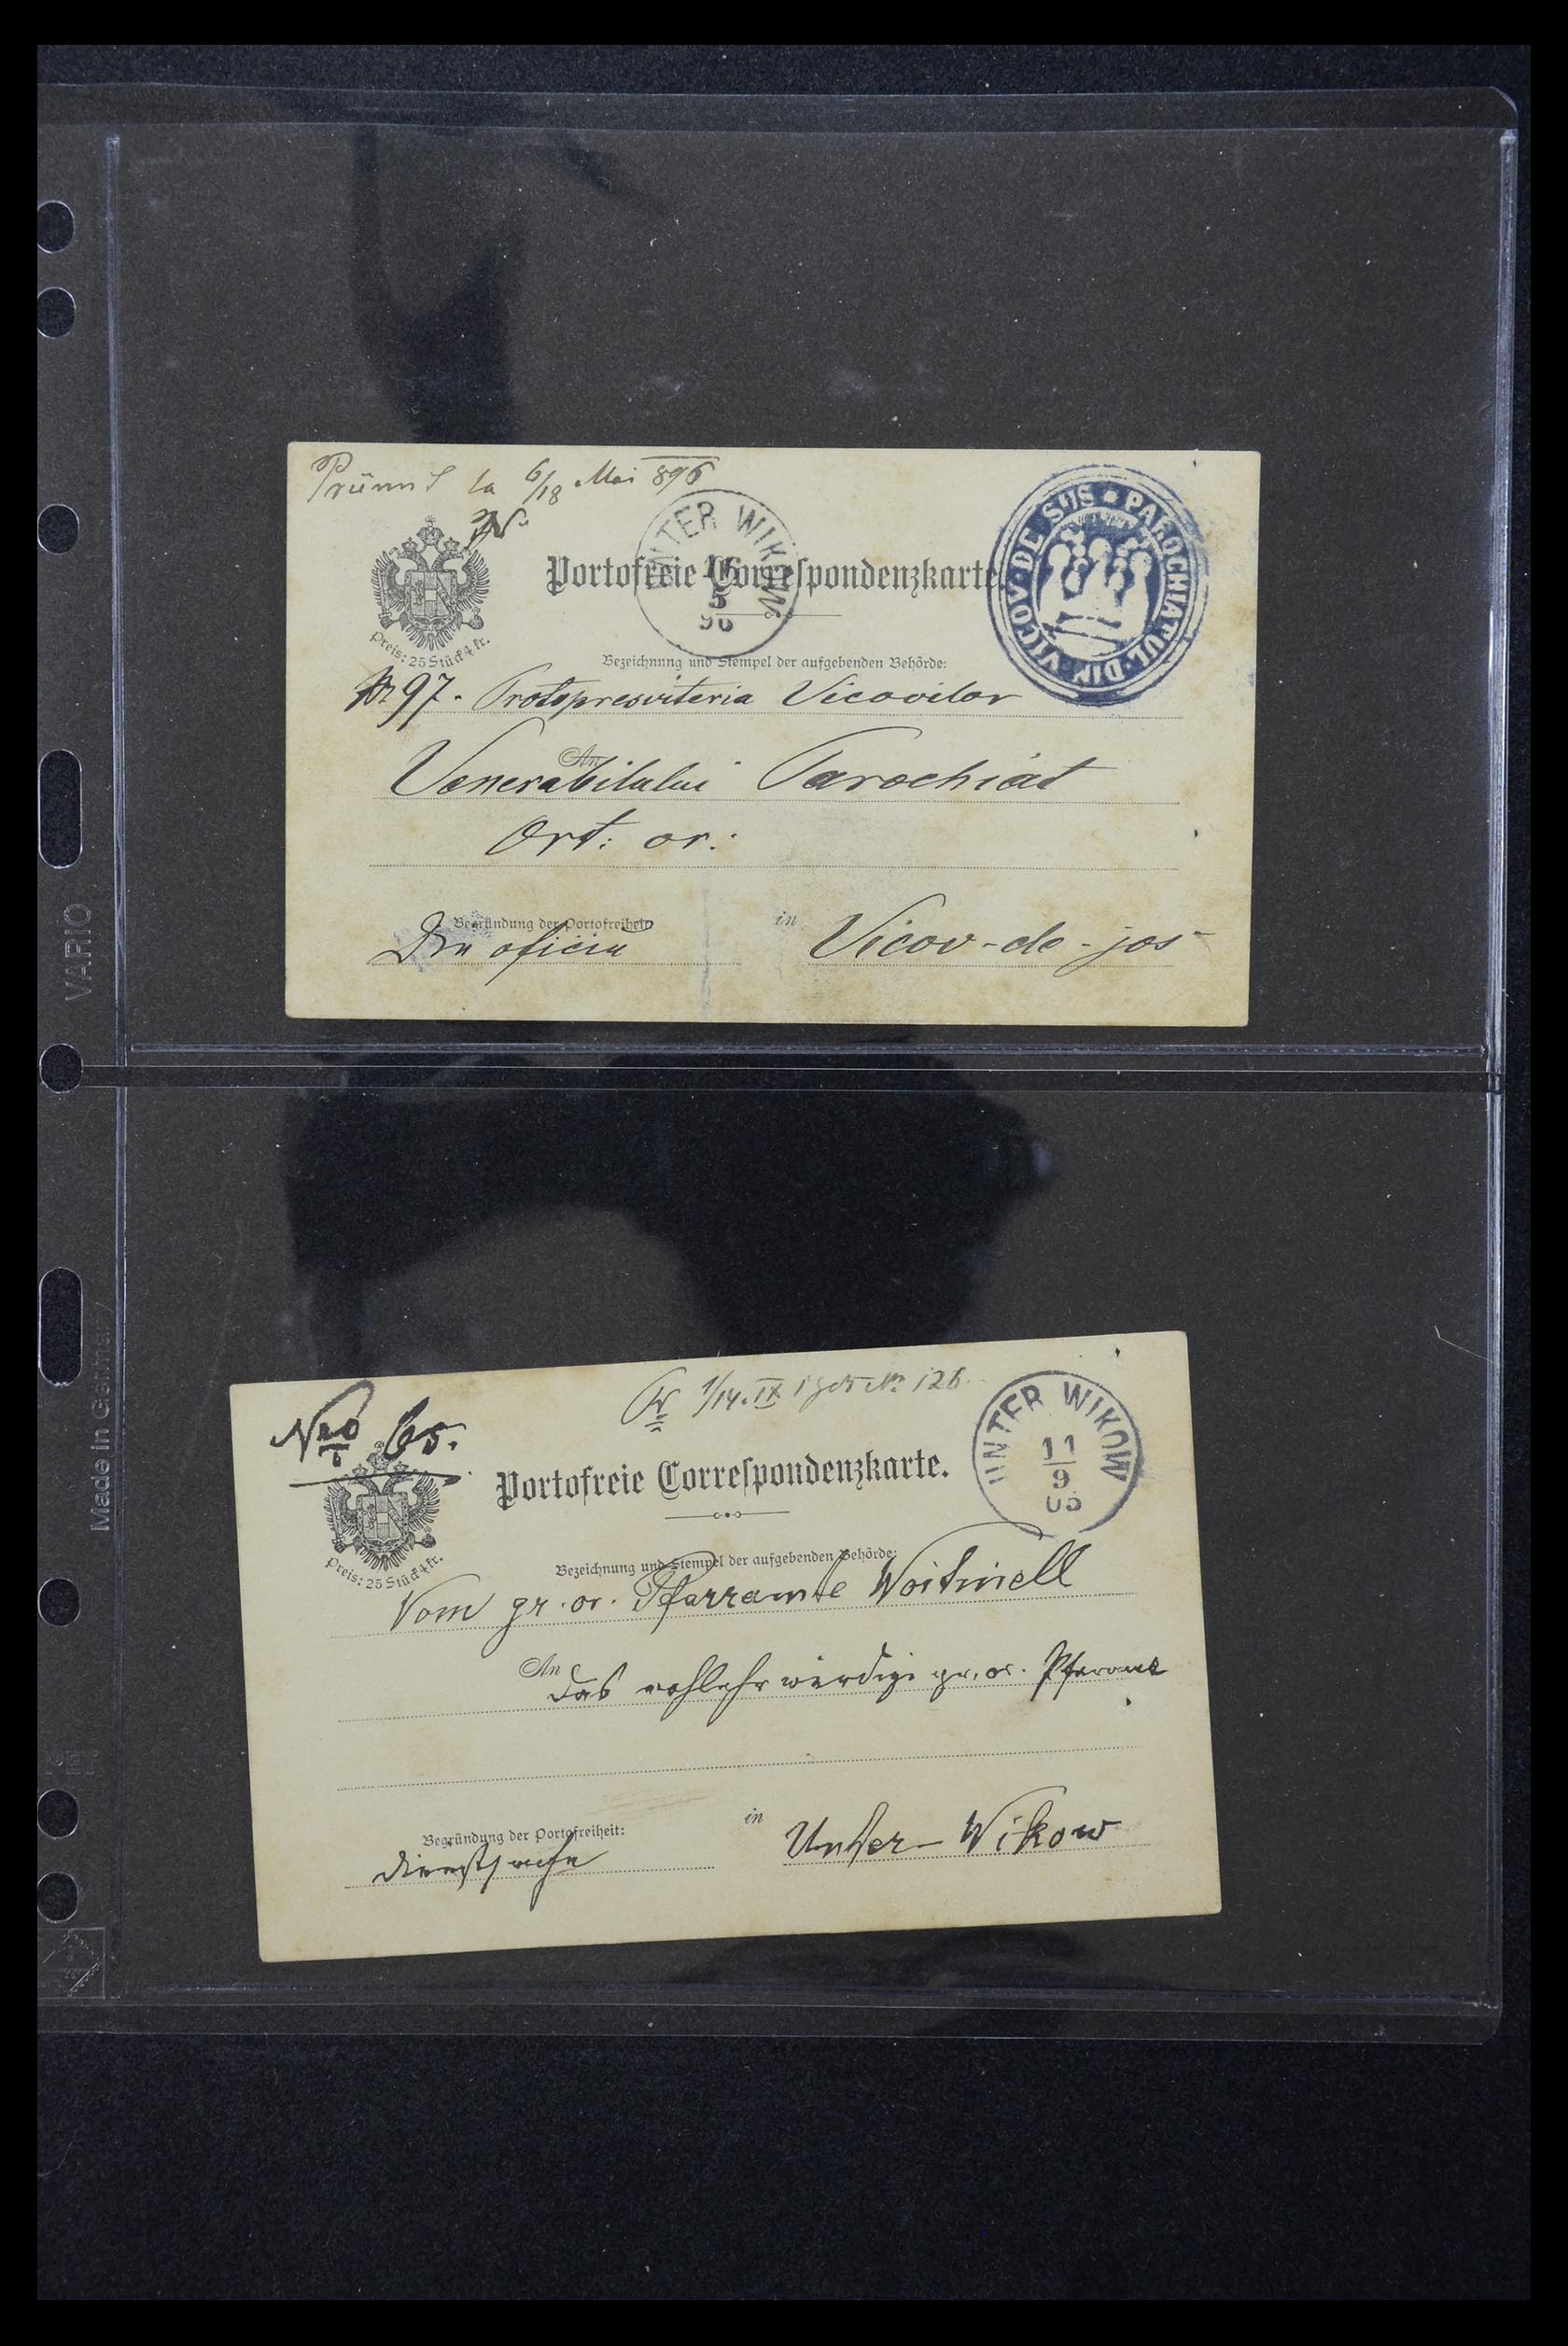 la 6/18 Mai 896
UNTER WIKOW
5
96
PAROCHIATUL DIN VICOV DE SUS
Portofreie Correspondenzkarte.
Preis: 25 Stück 4 kr.
Bezeichnung und Stempel der aufgebenden Behörde:
Nr 97. Protopresviteria Vicovilor
An
Venerabilului Parochiat
Ort: or:
Begründung der Portofreiheit:
in
Din oficiu
Vicov-de-jos
VARIO
Made in Germany
1/14. IX No 126
Nro 65.
UNTER WIKOW
11
9
05
Portofreie Correspondenzkarte.
Preis: 25 Stück 4 kr.
Bezeichnung und Stempel der aufgebenden Behörde:
Vom gr. or. Pfarramte Woitinell
An
Das wohlehrwürdige gr. or. Pfarramt
Begründung der Portofreiheit:
in
Dienstsache
Unter-Wikow